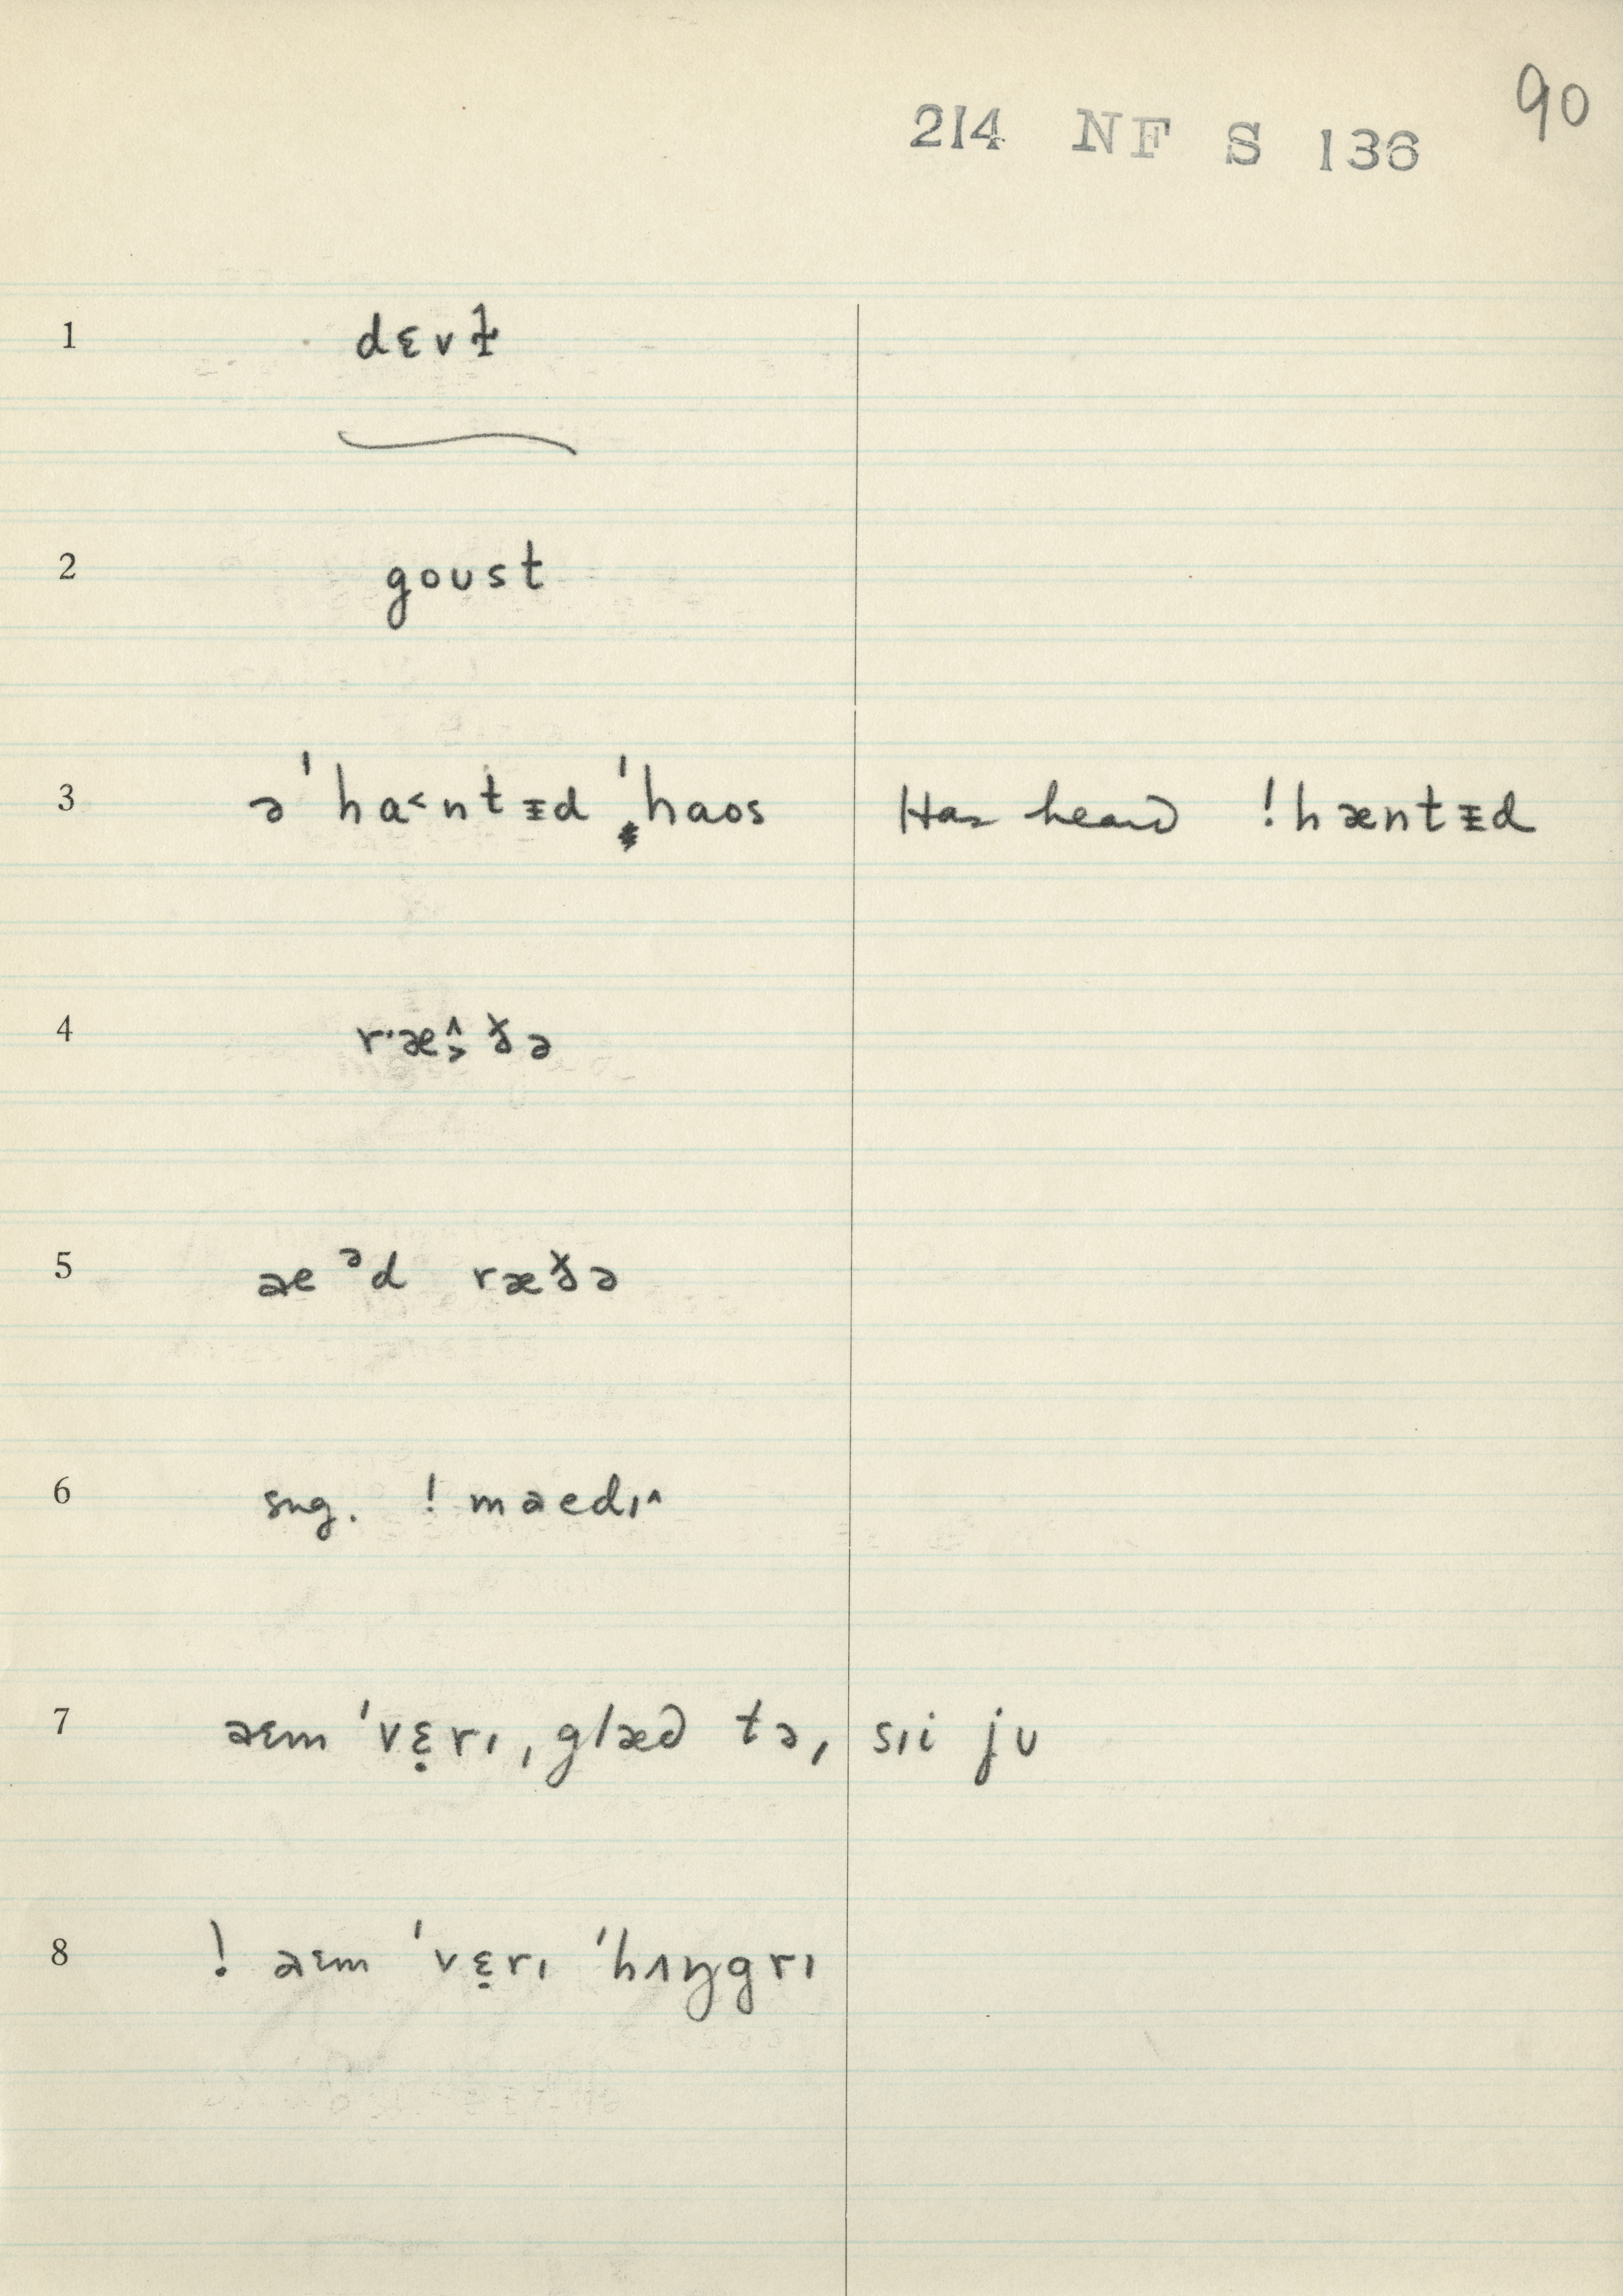 90
214 NF S 136
1 dɛvɫ̩
2 goust
3 ə ˈha˂ntᵻd ˈhaos Has heard !hæntᵻd
4 r·æ˄˃ðə
5 aeᵊd ræðə
6 sug. ! maedɪ˄
7 aɛm ˈvɛ̣rɪ, glæd tə, sɪi jʊ
8 ! aɛm ˈvɛ̣rɪ ˈhʌŋgrɪ